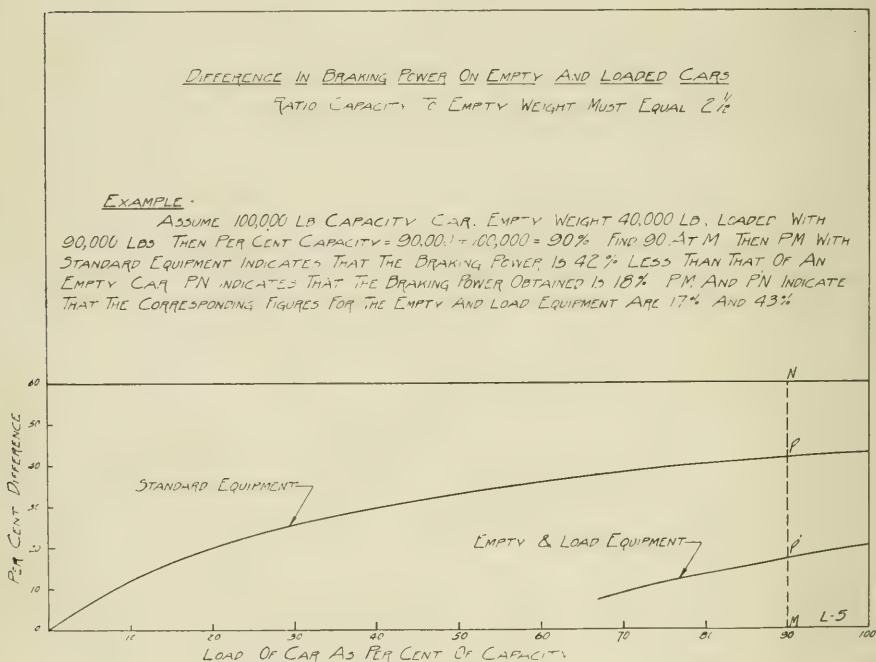 DIFFERENCE IN BRAKING POWER ON EMPTY AND LOADED CARS
RATIO CAPACITY TO EMPTY WEIGHT MUST EQUAL 2 1/2
EXAMPLE.
ASSUME 100,000 LB CAPACITY CAR. EMPTY WEIGHT 40,000 LB. LOADED WITH
90,000 LBS THEN PER CENT CAPACITY = 90,000 ÷ 100,000 = 90% FIND 90 AT M THEN PM WITH
STANDARD EQUIPMENT INDICATES THAT THE BRAKING POWER IS 42% LESS THAN THAT OF AN
EMPTY CAR PN INDICATES THAT THE BRAKING POWER OBTAINED IS 18% P'M AND P'N INDICATE
THAT THE CORRESPONDING FIGURES FOR THE EMPTY AND LOAD EQUIPMENT ARE 17% AND 43%
60
N
50
P
40
STANDARD EQUIPMENT
30
EMPTY & LOAD EQUIPMENT
P'
20
10
0
M
L-5
10 20 30 40 50 60 70 80 90 100
PER CENT DIFFERENCE
LOAD OF CAR AS PER CENT OF CAPACITY